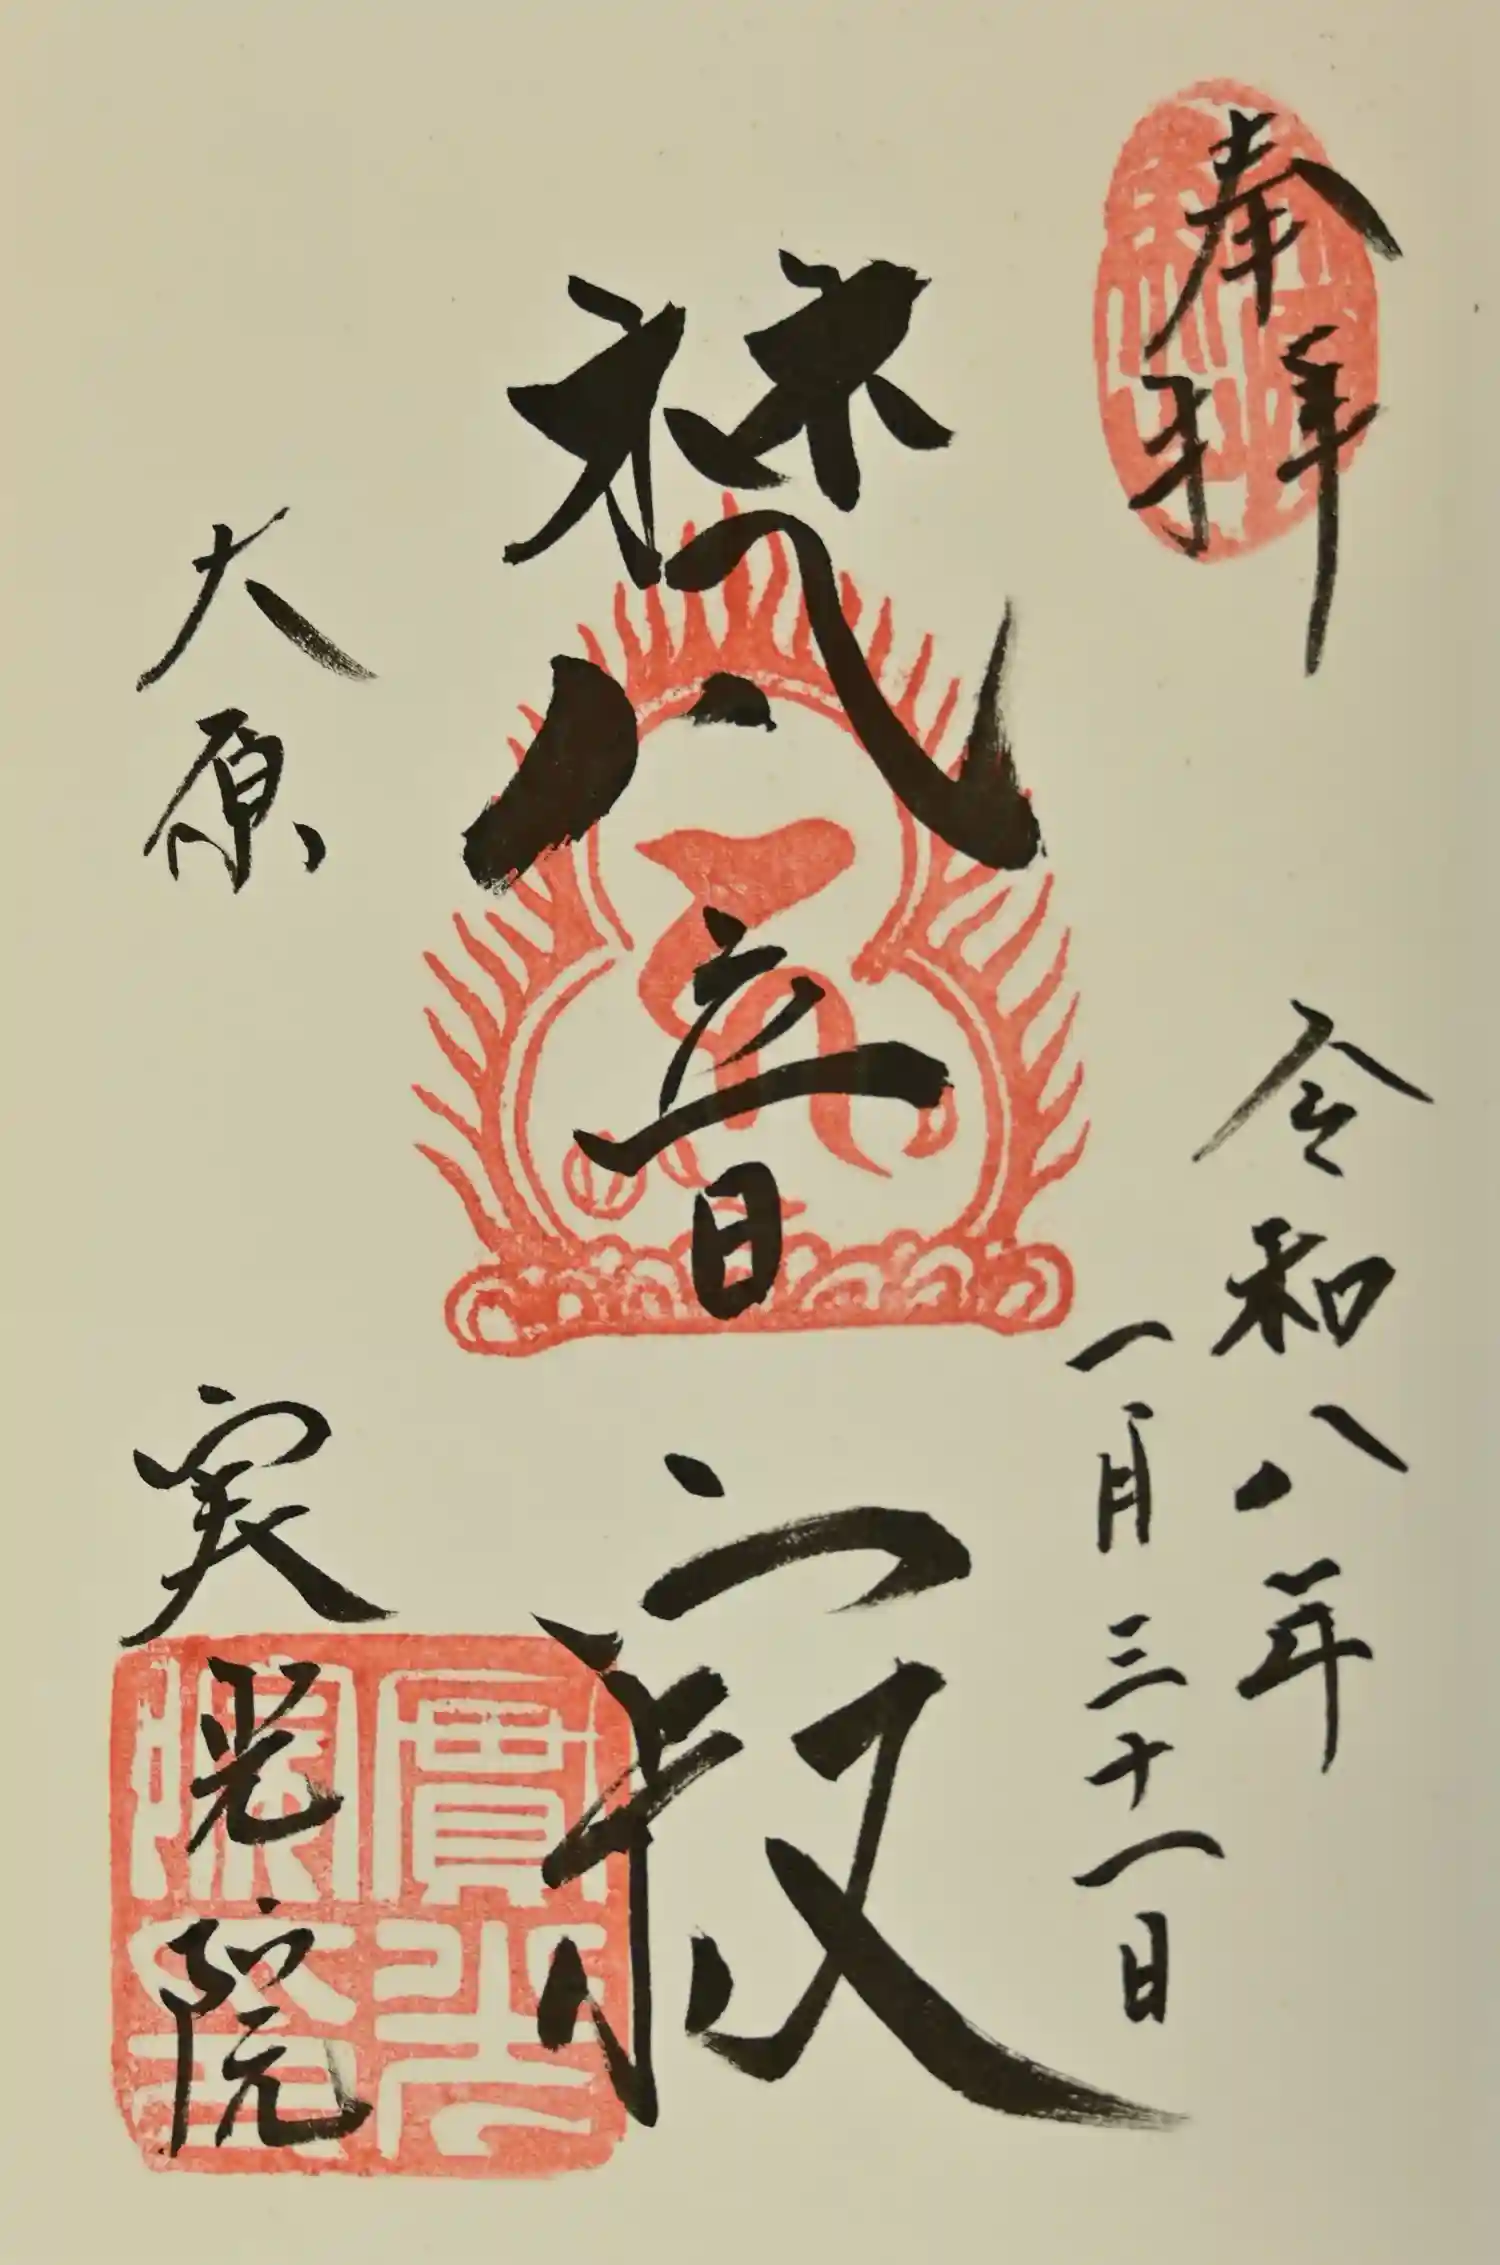 奉拝
令和八年
一月三十一日
梵音殿
大原
実光院
實光
院